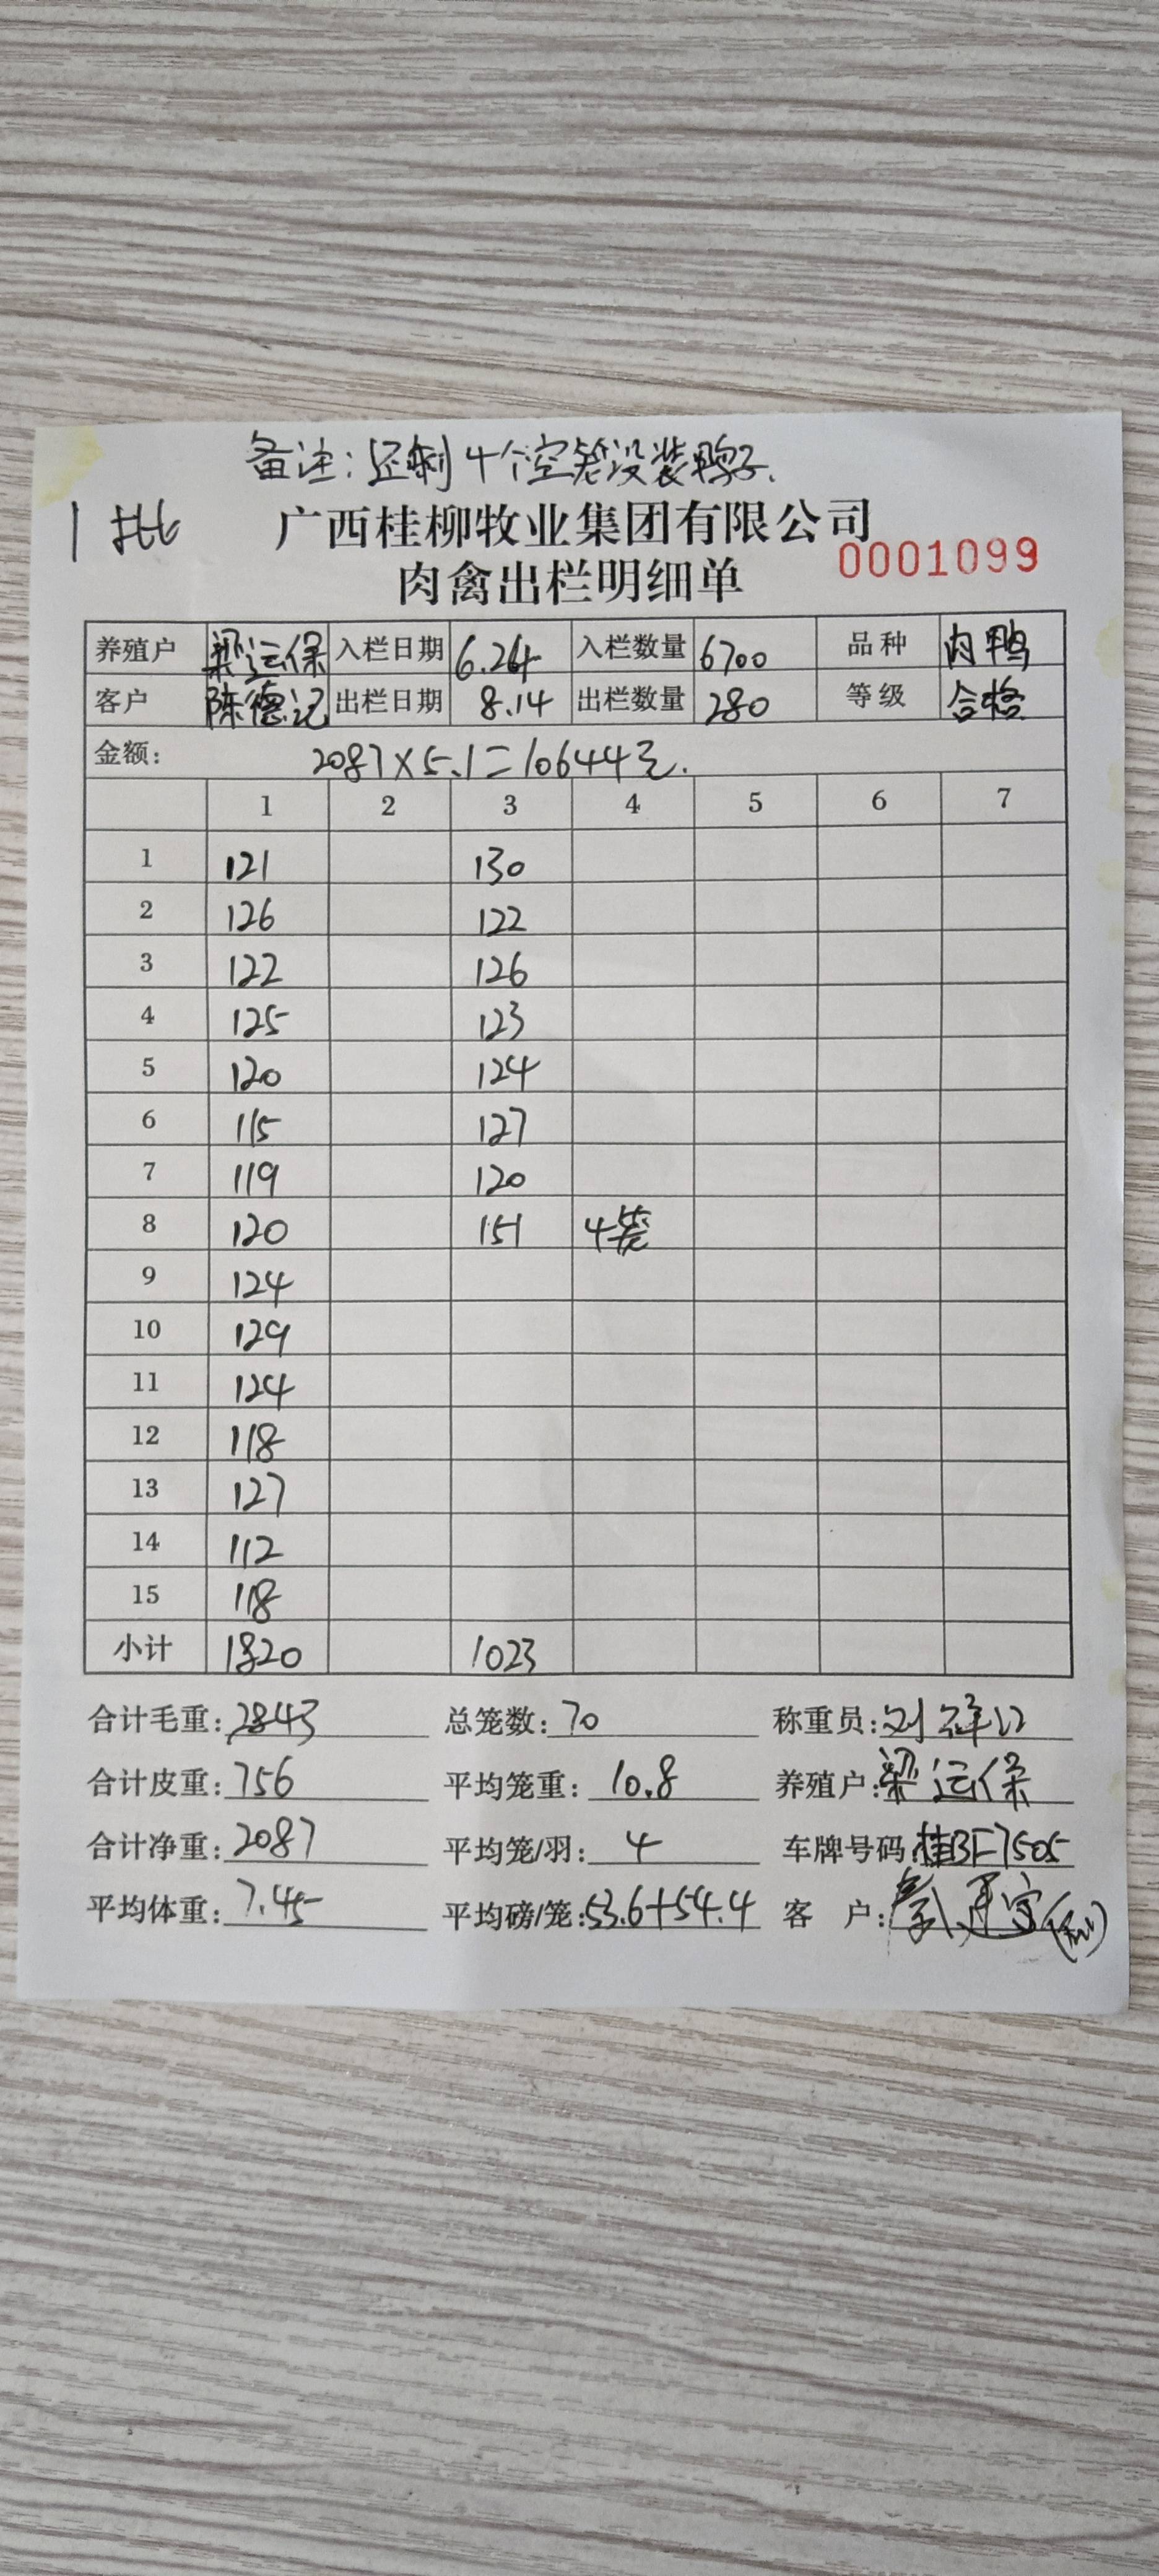 备注:还剩4个空笼没装鸭子.
1批 广西桂柳牧业集团有限公司
0001099
肉禽出栏明细单
养殖户 梁运保 入栏日期 6.24 入栏数量 6700 品种 肉鸭
客户 陈德记 出栏日期 8.14 出栏数量 280 等级 合格
金额: 2087×5.1=10644元.
1 2 3 4 5 6 7
1 121 130
2 126 122
3 122 126
4 125 123
5 120 124
6 115 127
7 119 120
8 120 151 4笼
9 124
10 129
11 124
12 118
13 127
14 112
15 118
小计 1820 1023
合计毛重:2843 总笼数:70 称重员:刘
合计皮重:756 平均笼重:10.8 养殖户:梁运保
合计净重:2087 平均笼/羽:4 车牌号码:桂BF7505
平均体重:7.45 平均磅/笼:53.6+54.4 客户: